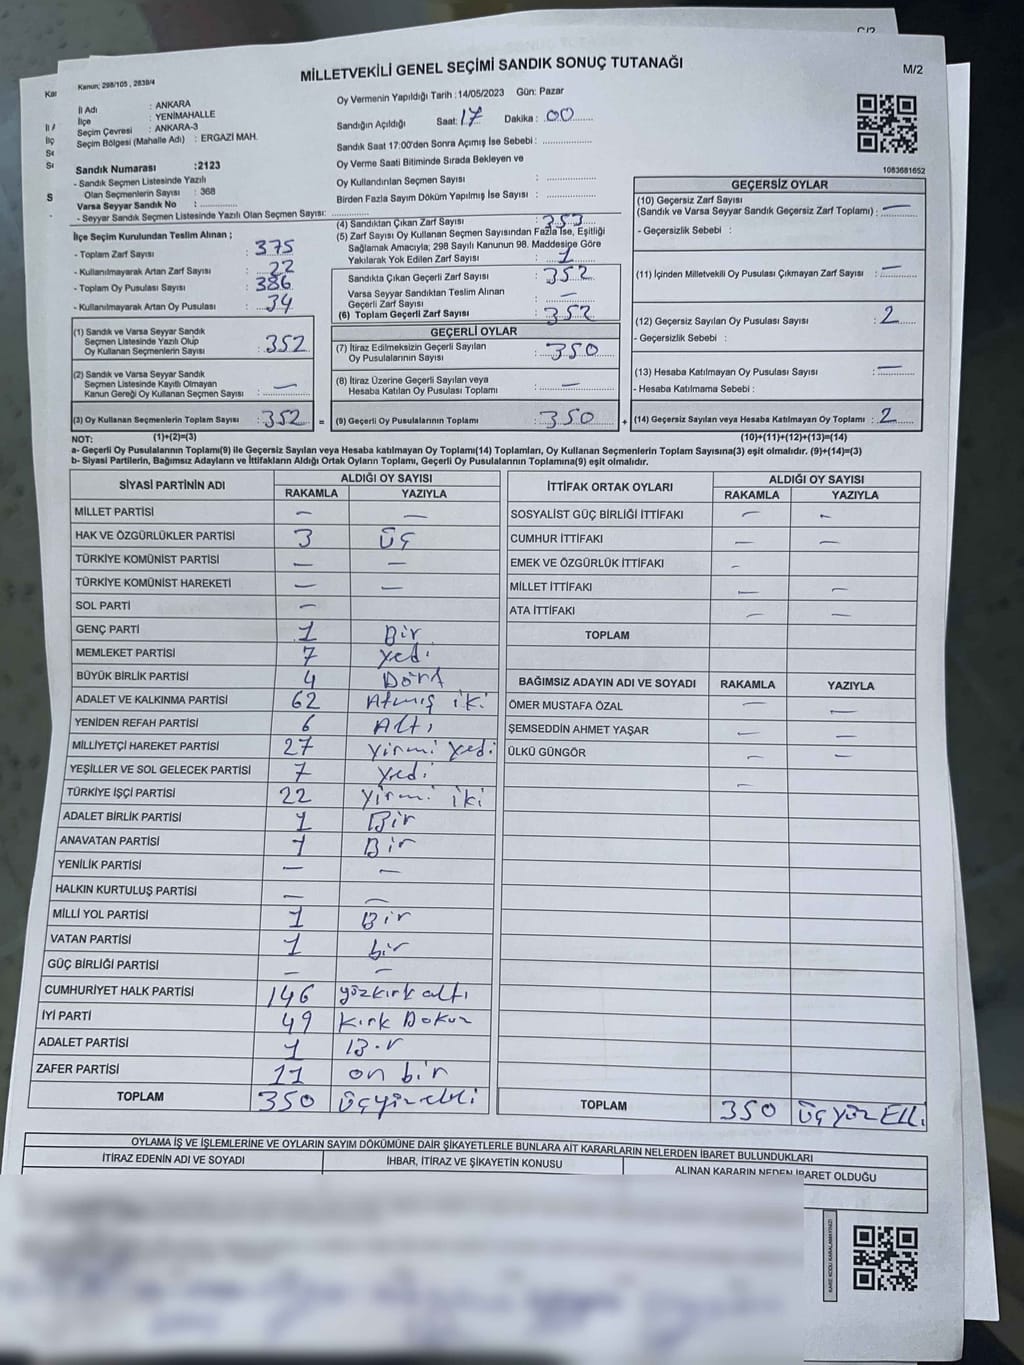 C/2
MİLLETVEKİLİ GENEL SEÇİMİ SANDIK SONUÇ TUTANAĞI
M/2
Kanun; 298/105 , 2839/4
İl Adı : ANKARA
İlçe : YENİMAHALLE
Seçim Çevresi : ANKARA-3
Seçim Bölgesi (Mahalle Adı) : ERGAZİ MAH.
Sandık Numarası :2123
- Sandık Seçmen Listesinde Yazılı
Olan Seçmenlerin Sayısı : 368
Varsa Seyyar Sandık No :
- Seyyar Sandık Seçmen Listesinde Yazılı Olan Seçmen Sayısı:
Oy Vermenin Yapıldığı Tarih :14/05/2023 Gün: Pazar
Sandığın Açıldığı Saat: 17 Dakika : 00
Sandık Saat 17:00'den Sonra Açımış İse Sebebi :
Oy Verme Saati Bitiminde Sırada Bekleyen ve
Oy Kullandırılan Seçmen Sayısı :
Birden Fazla Sayım Döküm Yapılmış İse Sayısı :
1083681652
İlçe Seçim Kurulundan Teslim Alınan ;
- Toplam Zarf Sayısı : 375
- Kullanılmayarak Artan Zarf Sayısı : 22
- Toplam Oy Pusulası Sayısı : 386
- Kullanılmayarak Artan Oy Pusulası : 34
(1) Sandık ve Varsa Seyyar Sandık
Seçmen Listesinde Yazılı Olup
Oy Kullanan Seçmenlerin Sayısı : 352
(2) Sandık ve Varsa Seyyar Sandık
Seçmen Listesinde Kayıtlı Olmayan
Kanun Gereği Oy Kullanan Seçmen Sayısı : —
(3) Oy Kullanan Seçmenlerin Toplam Sayısı : 352 =
(4) Sandıktan Çıkan Zarf Sayısı : 353
(5) Zarf Sayısı Oy Kullanan Seçmen Sayısından Fazla İse, Eşitliği
Sağlamak Amacıyla; 298 Sayılı Kanunun 98. Maddesine Göre
Yakılarak Yok Edilen Zarf Sayısı : 1
Sandıkta Çıkan Geçerli Zarf Sayısı : 352
Varsa Seyyar Sandıktan Teslim Alınan
Geçerli Zarf Sayısı : —
(6) Toplam Geçerli Zarf Sayısı : 352
GEÇERLİ OYLAR
(7) İtiraz Edilmeksizin Geçerli Sayılan
Oy Pusulalarının Sayısı : 350
(8) İtiraz Üzerine Geçerli Sayılan veya
Hesaba Katılan Oy Pusulası Toplamı : —
(9) Geçerli Oy Pusulalarının Toplamı : 350 +
GEÇERSİZ OYLAR
(10) Geçersiz Zarf Sayısı
(Sandık ve Varsa Seyyar Sandık Geçersiz Zarf Toplamı) : —
- Geçersizlik Sebebi :
(11) İçinden Milletvekili Oy Pusulası Çıkmayan Zarf Sayısı : —
(12) Geçersiz Sayılan Oy Pusulası Sayısı : 2
- Geçersizlik Sebebi :
(13) Hesaba Katılmayan Oy Pusulası Sayısı : —
- Hesaba Katılmama Sebebi :
(14) Geçersiz Sayılan veya Hesaba Katılmayan Oy Toplamı : 2
NOT: (1)+(2)=(3) (10)+(11)+(12)+(13)=(14)
a- Geçerli Oy Pusulalarının Toplamı(9) ile Geçersiz Sayılan veya Hesaba katılmayan Oy Toplamı(14) Toplamları, Oy Kullanan Seçmenlerin Toplam Sayısına(3) eşit olmalıdır. (9)+(14)=(3)
b- Siyasi Partilerin, Bağımsız Adayların ve İttifakların Aldığı Ortak Oyların Toplamı, Geçerli Oy Pusulalarının Toplamına(9) eşit olmalıdır.
SİYASİ PARTİNİN ADI ALDIĞI OY SAYISI
RAKAMLA YAZIYLA
MİLLET PARTİSİ — —
HAK VE ÖZGÜRLÜKLER PARTİSİ 3 ÜÇ
TÜRKİYE KOMÜNİST PARTİSİ — —
TÜRKİYE KOMÜNİST HAREKETİ — —
SOL PARTİ —
GENÇ PARTİ 1 Bir
MEMLEKET PARTİSİ 7 yedi
BÜYÜK BİRLİK PARTİSİ 4 Dört
ADALET VE KALKINMA PARTİSİ 62 Atmış iki
YENİDEN REFAH PARTİSİ 6 Altı
MİLLİYETÇİ HAREKET PARTİSİ 27 yirmi yedi
YEŞİLLER VE SOL GELECEK PARTİSİ 7 yedi
TÜRKİYE İŞÇİ PARTİSİ 22 yirmi iki
ADALET BİRLİK PARTİSİ 1 Bir
ANAVATAN PARTİSİ 1 Bir
YENİLİK PARTİSİ — —
HALKIN KURTULUŞ PARTİSİ — —
MİLLİ YOL PARTİSİ 1 Bir
VATAN PARTİSİ 1 bir
GÜÇ BİRLİĞİ PARTİSİ — —
CUMHURİYET HALK PARTİSİ 146 yüzkırk altı
İYİ PARTİ 49 Kırk Dokuz
ADALET PARTİSİ 1 Bir
ZAFER PARTİSİ 11 on bir
TOPLAM 350 üçyüzelli
İTTİFAK ORTAK OYLARI ALDIĞI OY SAYISI
RAKAMLA YAZIYLA
SOSYALİST GÜÇ BİRLİĞİ İTTİFAKI — —
CUMHUR İTTİFAKI — —
EMEK VE ÖZGÜRLÜK İTTİFAKI —
MİLLET İTTİFAKI — —
ATA İTTİFAKI — —
TOPLAM
BAĞIMSIZ ADAYIN ADI VE SOYADI RAKAMLA YAZIYLA
ÖMER MUSTAFA ÖZAL — —
ŞEMSEDDİN AHMET YAŞAR — —
ÜLKÜ GÜNGÖR — —
—
TOPLAM 350 üç yüz Elli
OYLAMA İŞ VE İŞLEMLERİNE VE OYLARIN SAYIM DÖKÜMÜNE DAİR ŞİKAYETLERLE BUNLARA AİT KARARLARIN NELERDEN İBARET BULUNDUKLARI
İTİRAZ EDENİN ADI VE SOYADI İHBAR, İTİRAZ VE ŞİKAYETİN KONUSU ALINAN KARARIN NEDEN İBARET OLDUĞU
KARE KODU KARALAMAYINIZ!